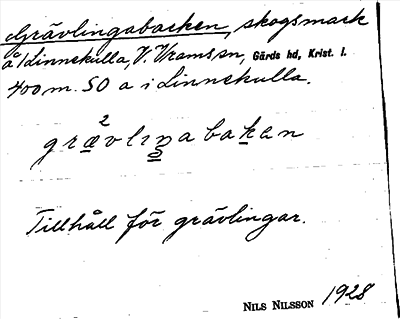 Grävlingabacken, skogsmark
å Linnekulla, V. Vrams sn, Gärds hd, Krist. l.
400 m. SO a i Linnekulla.
2
grævlıŋabakan
Tillhåll för grävlingar.
NILS NILSSON 1928